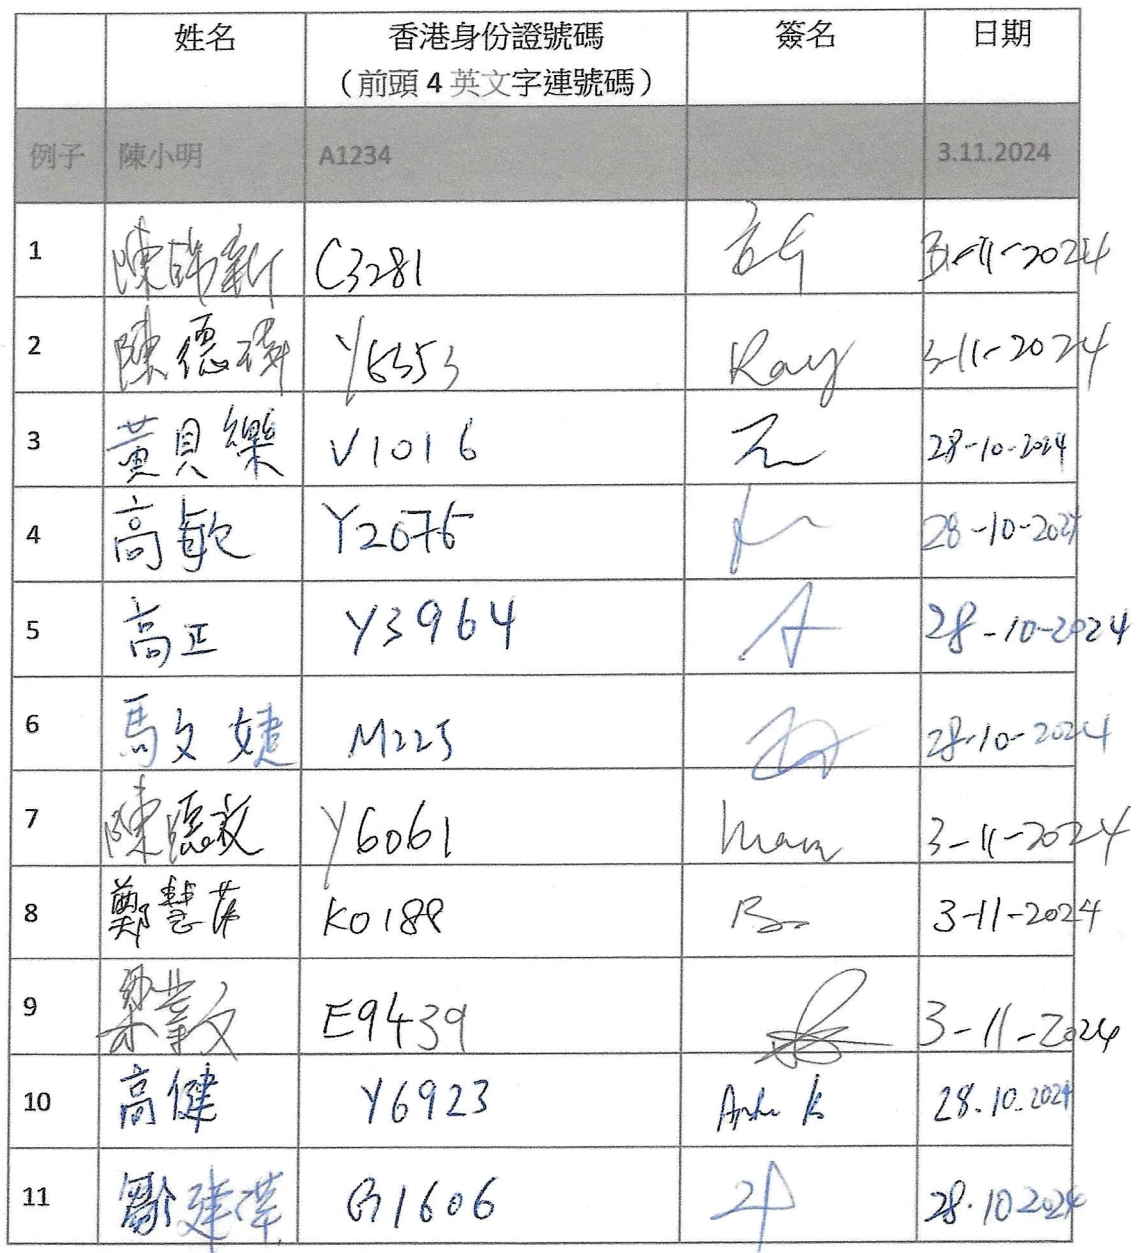 姓名 香港身份證號碼 簽名 日期
（前頭 4 英文字連號碼）
例子 陳小明 A1234 3.11.2024
1 陳 C3281 3-11-2024
2 陳德 Y6553 Ray 3-11-2024
3 黃貝樂 V1016 28-10-2024
4 高敏 Y2676 28-10-2024
5 高正 Y3964 28-10-2024
6 馬文婕 M225 28-10-2024
7 陳德 Y6061 3-11-2024
8 鄭慧 K0188 3-11-2024
9 梁 E9439 3-11-2024
10 高健 Y6923 28.10.2024
11 鄒建 G1606 28.10 2024